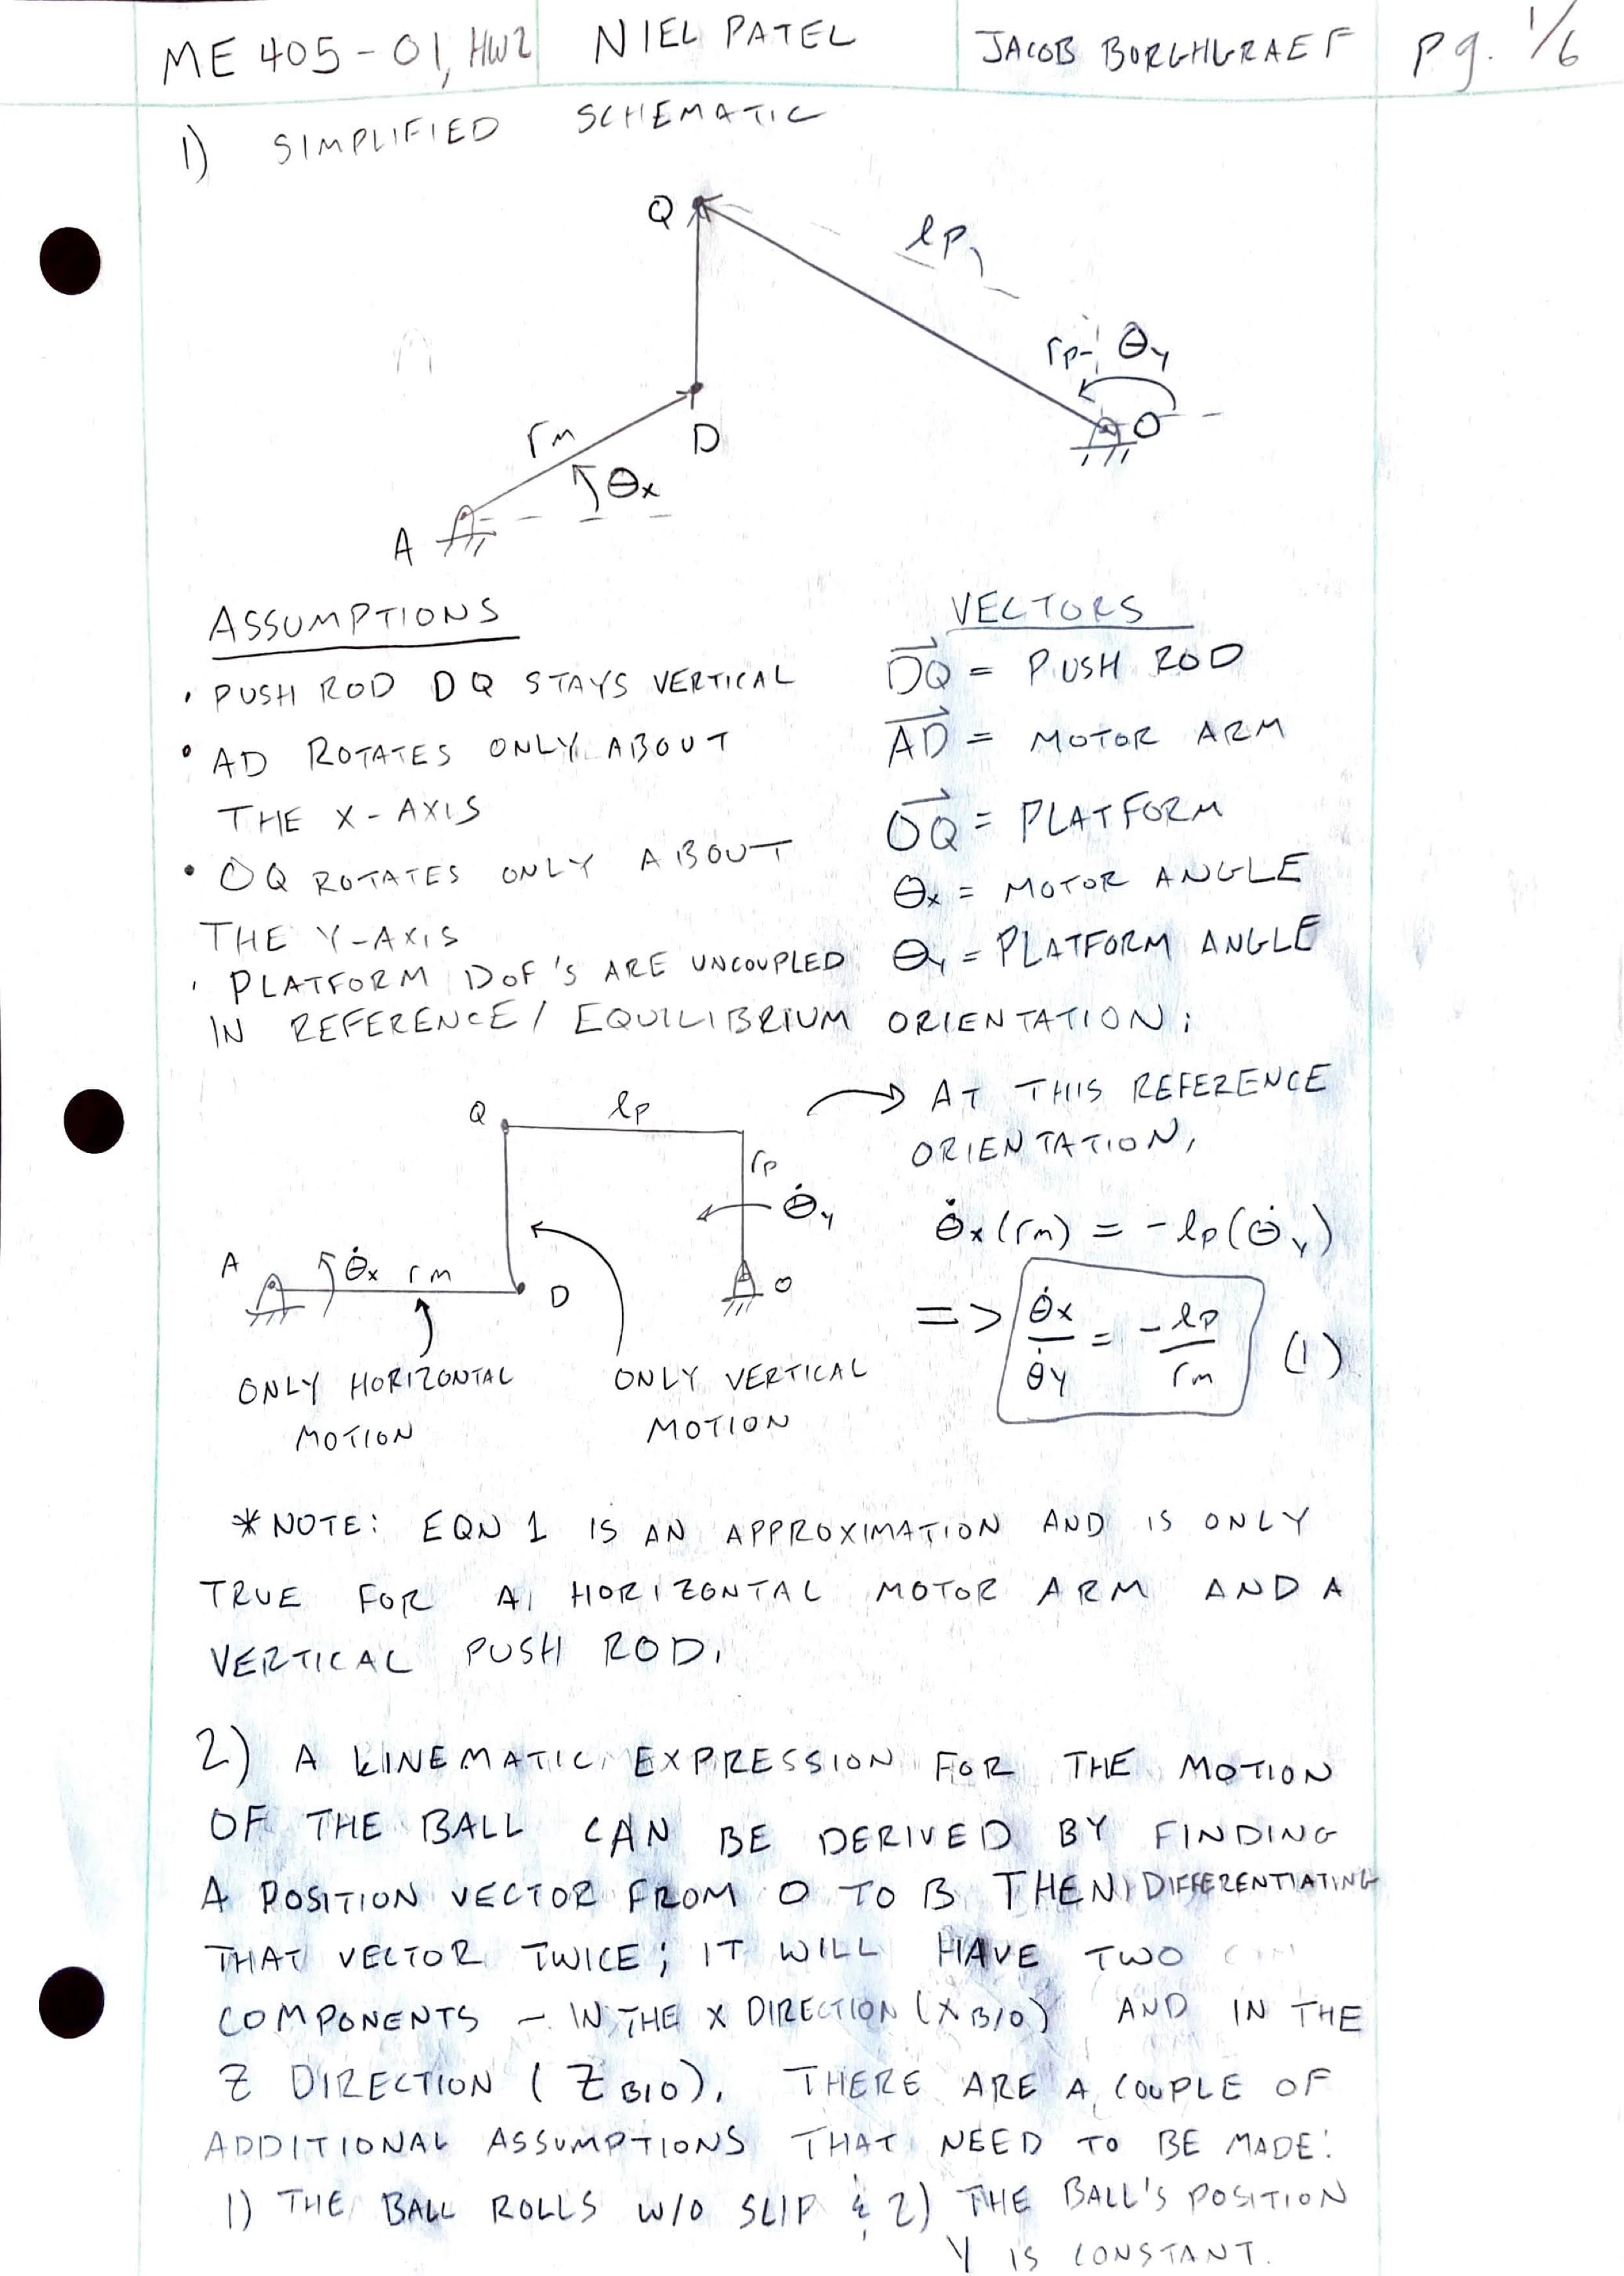 ME 405-01, HW2 NIEL PATEL JACOB BORGHGRAEF pg. 1/6
1) SIMPLIFIED SCHEMATIC
Q
lp
rp θy
O
D
rm
θx
A
ASSUMPTIONS
• PUSH ROD DQ STAYS VERTICAL
• AD ROTATES ONLY ABOUT
THE X-AXIS
• OQ ROTATES ONLY ABOUT
THE Y-AXIS
• PLATFORM DOF'S ARE UNCOUPLED
IN REFERENCE/EQUILIBRIUM ORIENTATION:
VECTORS
DQ = PUSH ROD
AD = MOTOR ARM
OQ = PLATFORM
θx = MOTOR ANGLE
θy = PLATFORM ANGLE
Q lp
rp
θ̇y
A θ̇x rm D O
ONLY HORIZONTAL
MOTION
ONLY VERTICAL
MOTION
→ AT THIS REFERENCE
ORIENTATION,
θ̇x(rm) = -lp(θ̇y)
=> θ̇x/θ̇y = -lp/rm (1)
*NOTE: EQN 1 IS AN APPROXIMATION AND IS ONLY
TRUE FOR A HORIZONTAL MOTOR ARM AND A
VERTICAL PUSH ROD.
2) A KINEMATIC EXPRESSION FOR THE MOTION
OF THE BALL CAN BE DERIVED BY FINDING
A POSITION VECTOR FROM O TO B THEN DIFFERENTIATING
THAT VECTOR TWICE; IT WILL HAVE TWO
COMPONENTS - IN THE X DIRECTION (XB/O) AND IN THE
Z DIRECTION (ZB/O). THERE ARE A COUPLE OF
ADDITIONAL ASSUMPTIONS THAT NEED TO BE MADE:
1) THE BALL ROLLS W/O SLIP & 2) THE BALL'S POSITION
Y IS CONSTANT.